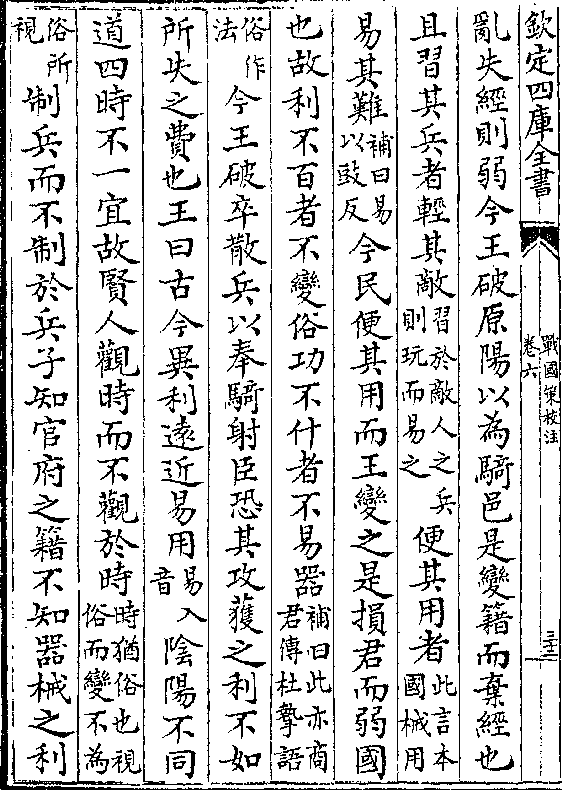 欽定四庫全書
戰國策校注
卷六
三十二
亂失經則弱今王破原陽以為騎邑是變籍而棄經也
且習其兵者輕其敵習於敵人之兵則玩而易之便其用者此言本國械用
易其難補曰易以豉反今民便其用而王變之是損君而弱國
也故利不百者不變俗功不什者不易器補曰此亦商君傳杜摯語
俗作法今王破卒散兵以奉騎射臣恐其攻獲之利不如
所失之費也王曰古今異利遠近易用易音入陰陽不同
道四時不一宜故賢人觀時而不觀於時時猶俗也視俗而變不為
俗所視制兵而不制於兵子知官府之籍不知器械之利